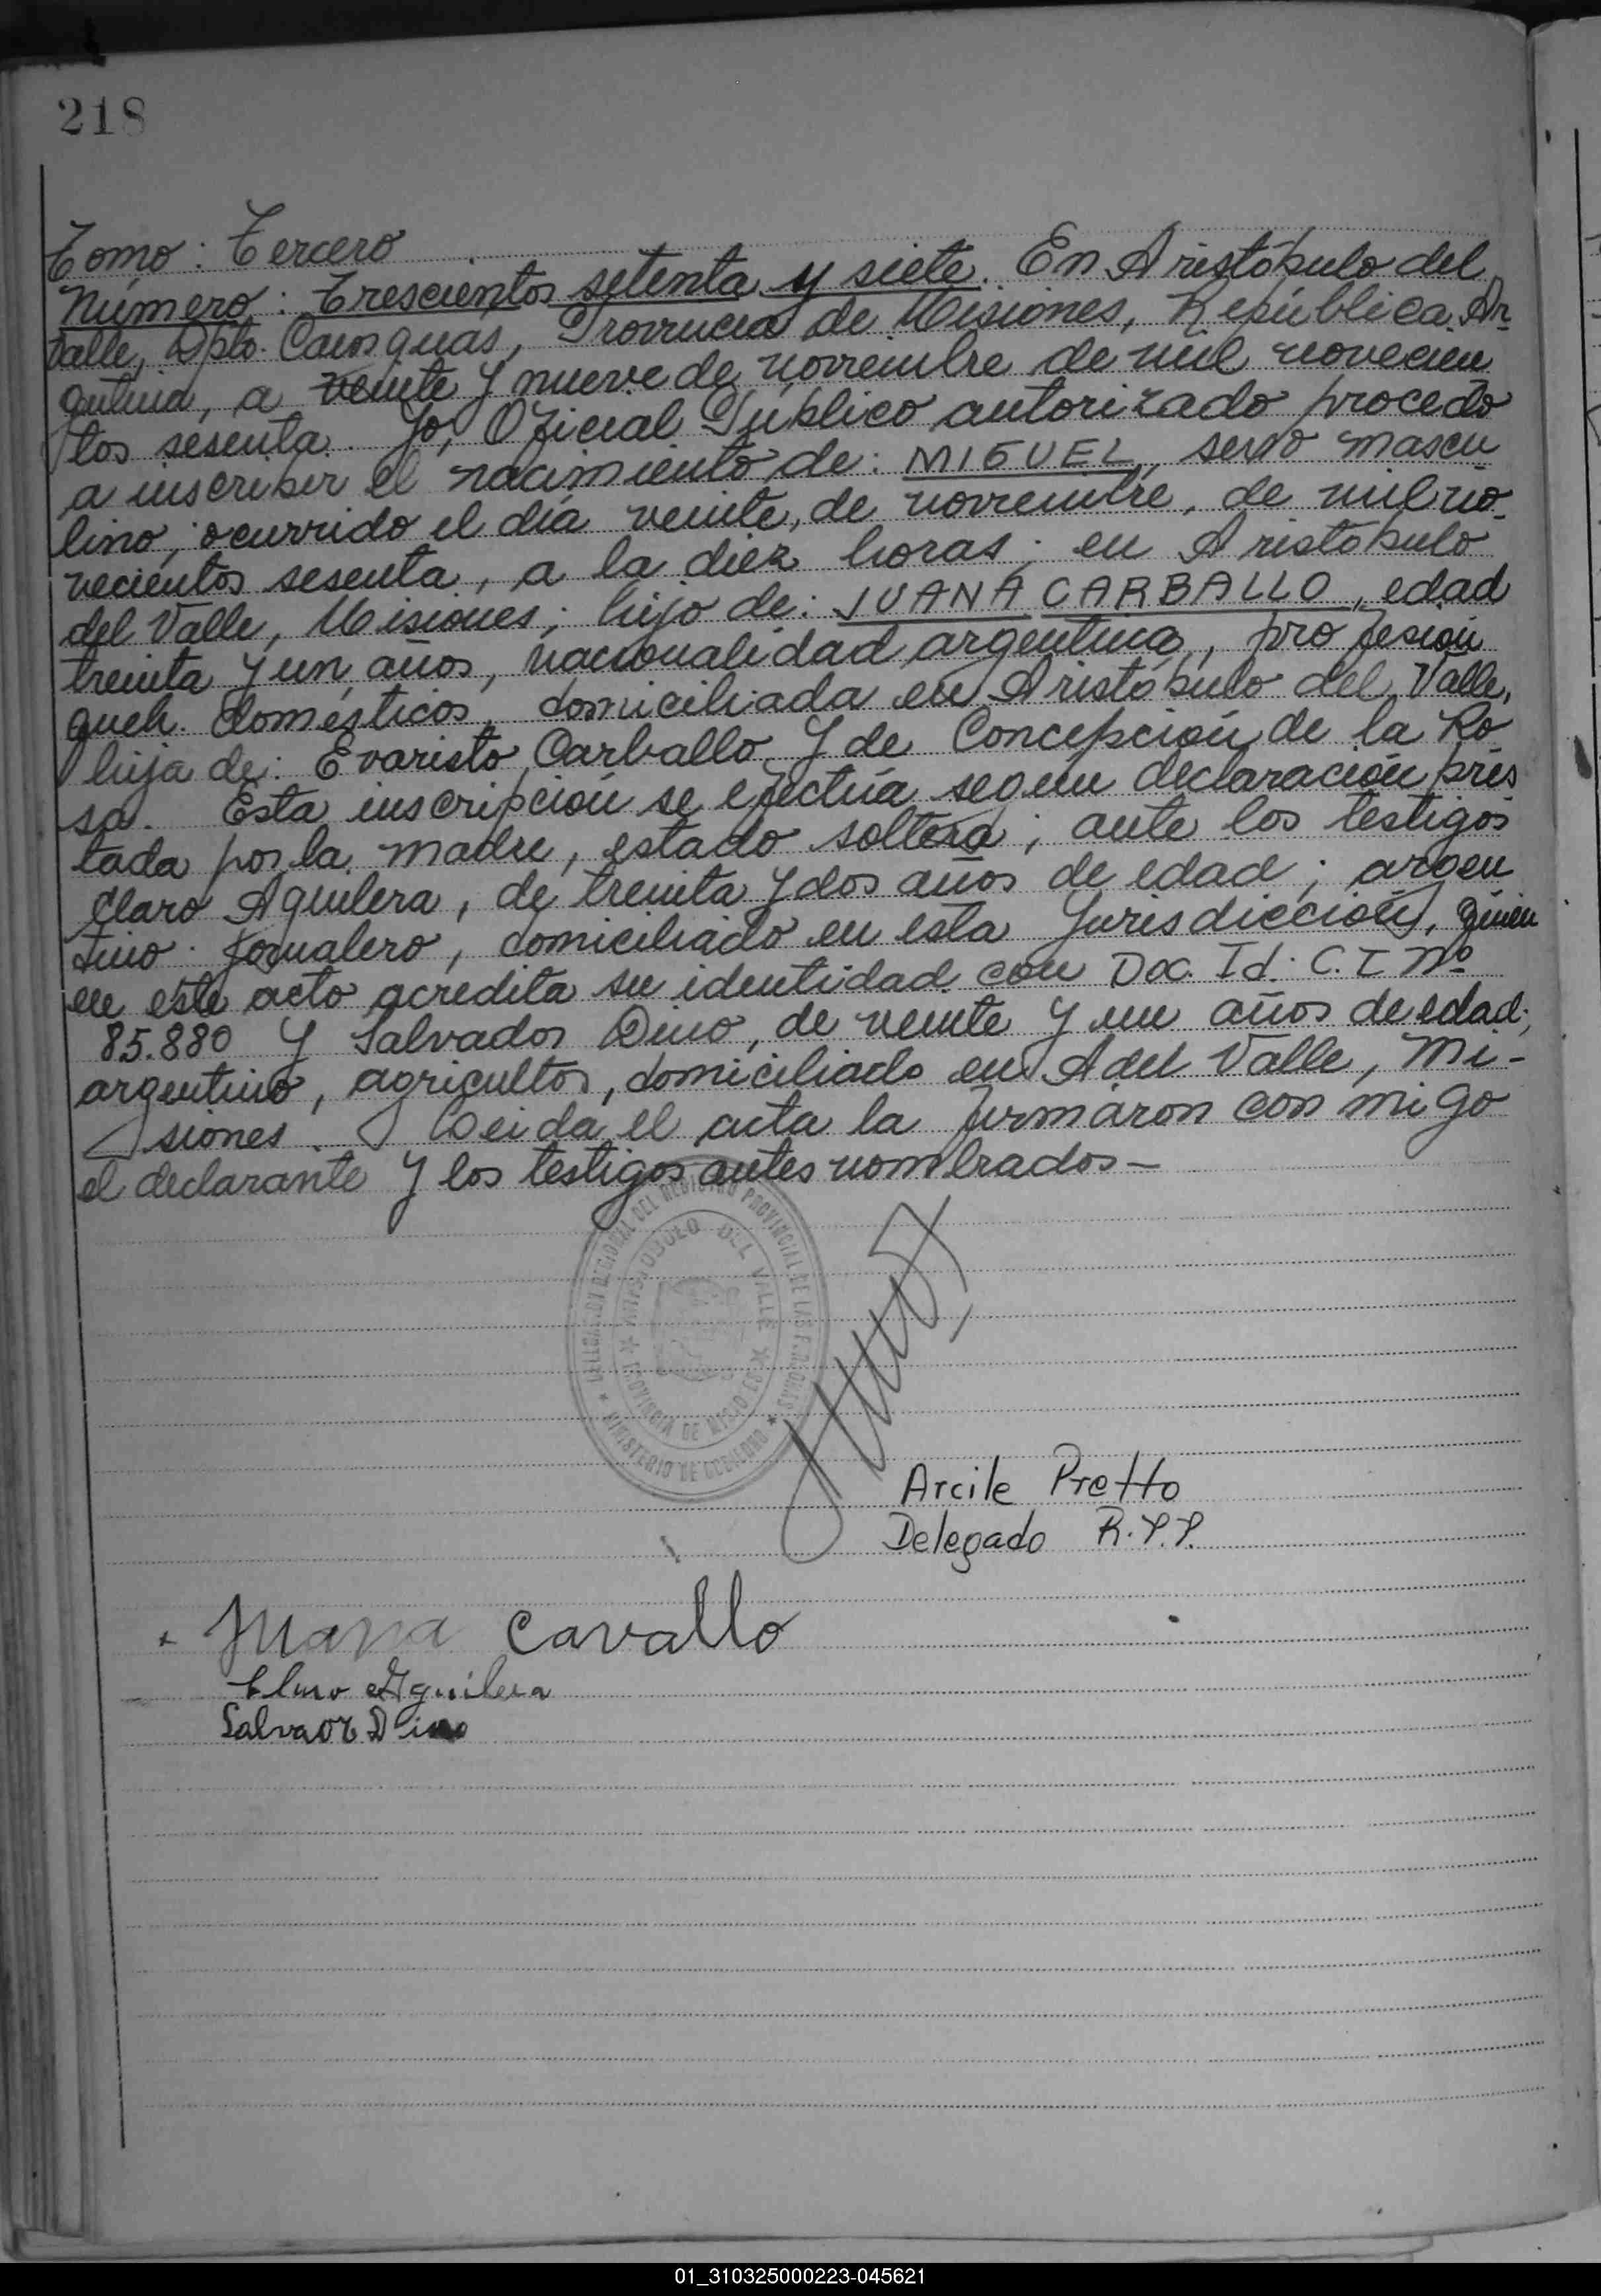 218
Tomo: Tercero
Número: Trescientos setenta y siete. En Aristóbulo del
Valle, Dpto. Cainguás, Provincia de Misiones, República Ar
gentina, a veinte y nueve de noviembre de mil novecien
tos sesenta. Yo, Oficial Público autorizado procedo
a inscribir el nacimiento de: MIGUEL, sexo mascu
lino, ocurrido el día veinte, de noviembre, de mil no
vecientos sesenta, a la diez horas; en Aristóbulo
del Valle, Misiones; hijo de: JUANA CARBALLO, edad
treinta y un años, nacionalidad argentina, profesión
queh. domésticos, domiciliada en Aristóbulo del Valle,
hija de: Evaristo Carballo y de Concepción de la Ro
sa. Esta inscripción se efectúa según declaración pres
tada por la madre, estado soltera; ante los testigos
Claro Aguilera, de treinta y dos años de edad; argen
tino jornalero, domiciliado en esta Jurisdicción, quien
en este acto acredita su identidad con Doc. Id. C.I Nº
85.880 y Salvador Dino, de veinte y un años de edad;
argentino, agricultor, domiciliado en A del Valle, Mi-
siones. Leida el acta la firmaron con migo
el declarante y los testigos antes nombrados-
DELEGACION REGIONAL DEL REGISTRO PROVINCIAL DE LAS PERSONAS
ARISTOBULO DEL VALLE
PROVINCIA DE MISIONES
MINISTERIO DE GOBIERNO
Arcile Pretto
Delegado R.P.P.
Juana Cavallo
Claro Aguilera
Salvaor Dino
01_310325000223-045621